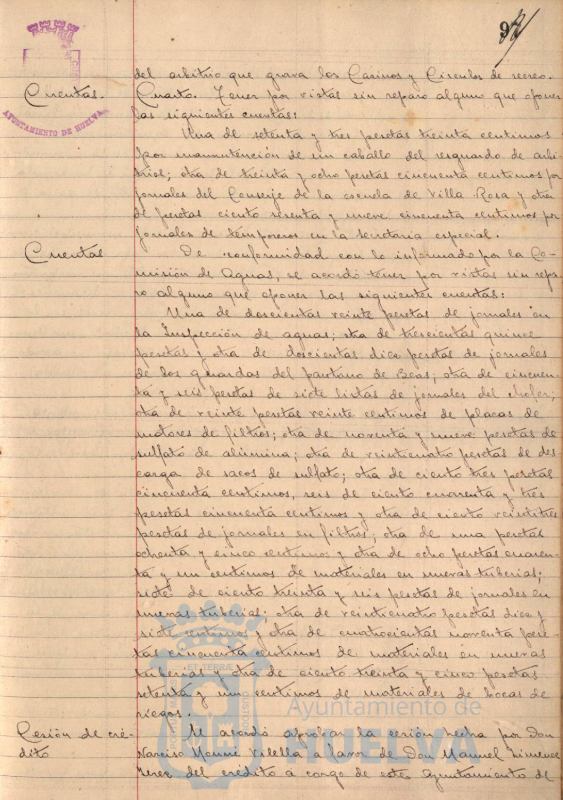 97
AYUNTAMIENTO DE HUELVA
del arbitrio que grava los Casinos y Circulos de recreo.
Cuentas. Cuarto. Tener por vistas sin reparo alguno que oponer
las siguientes cuentas:
Una de setenta y tres pesetas treinta centimos
por manutención de un caballo del resguardo de arbi-
trios; otra de treinta y ocho pesetas cincuenta centimos por
jornales del Conserje de la escuela de Villa Rosa y otra
de pesetas ciento sesenta y nueve cincuenta centimos por
jornales de temporeros en la secretaria especial.
Cuentas De conformidad con lo informado por la Co-
misión de Aguas, se acordó tener por vistas sin repa-
ro alguno que oponer las siguientes cuentas:
Una de doscientas veinte pesetas de jornales en
la Inspección de aguas; otra de trescientas quince
pesetas y otra de doscientas diez pesetas de jornales
de los guardas del pantano de Beas; otra de cincuen-
ta y seis pesetas de siete listas de jornales del chofer;
otra de veinte pesetas veinte centimos de placas de
motores de filtros; otra de noventa y nueve pesetas de
sulfato de alumina; otra de veinticuatro pesetas de des
carga de sacos de sulfato; otra de ciento tres pesetas
cincuenta centimos, seis de ciento cuarenta y tres
pesetas cincuenta centimos y otra de ciento veintitres
pesetas de jornales en filtros; otra de una pesetas
ochenta y cinco centimos y otra de ocho pesetas cuaren-
ta y un centimos de materiales en nuevas tuberias;
siete de ciento treinta y seis pesetas de jornales en
nuevas tuberias; otra de veinticuatro pesetas diez y
siete centimos y otra de cuatrocientas noventa pese-
tas cincuenta centimos de materiales en nuevas
tuberias y otra de ciento treinta y cinco pesetas
setenta y un centimos de materiales de bocas de
riegos.
Cesión de cré- Se acordó aprobar la cesión hecha por Don
dito Narciso Vilella a favor de Don Manuel Jimenez
del crédito a cargo de este Ayuntamiento de
Ayuntamiento de
HUELVA